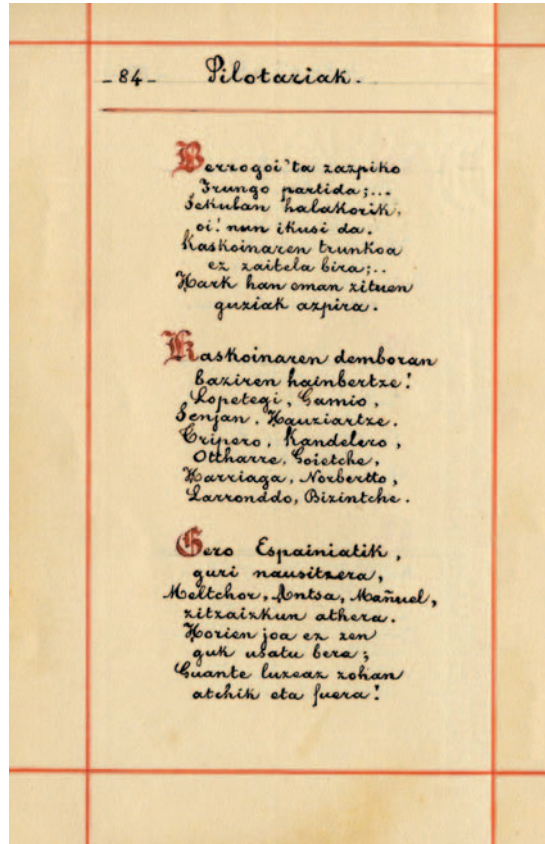 -84-
Pilotariak.
Berrogoi'ta zazpiko
Irungo partida;...
Sekulan halakorik,
oi! nun ikusi da.
Kaskoinaren trunkoa
ez zaitela bira;..
Hark han eman zituen
guziak azpira.
Kaskoinaren demboran
baziren hainbertze!
Lopetegi, Gamio,
Senjan, Hauziartze.
Tripero, Kandelero,
Ottharre, Goietche,
Harriaga, Norbertto,
Larronddo, Bizintche.
Gero Espainiatik,
guri nausitzera,
Meltchor, Antsa, Mañuel,
zitzaizkun athera.
Horien joa ez zen
guk usatu bera;
Guante luzeaz zohan
atchik eta fuera!